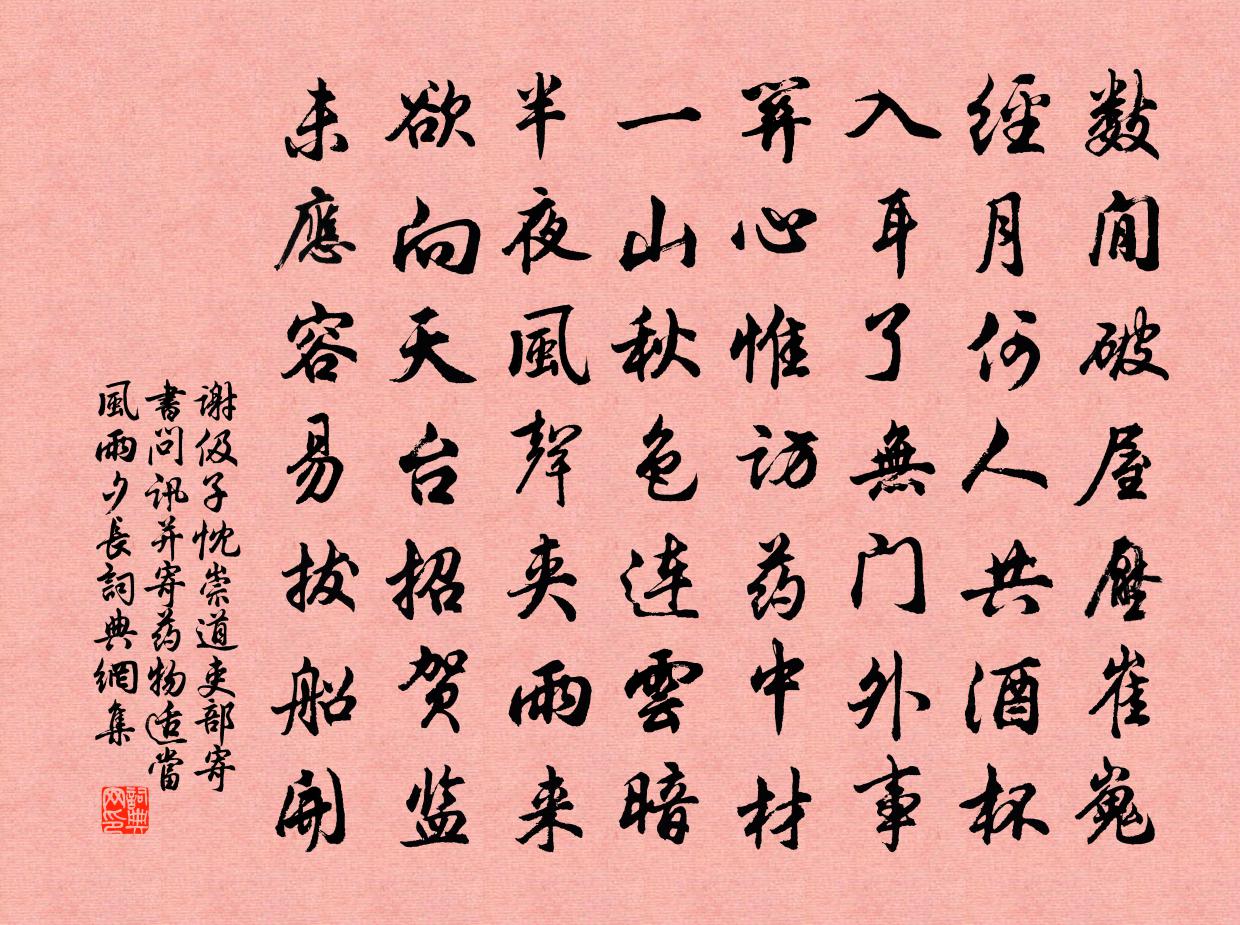 數間破屋壓崔嵬
經月何人共酒杯
入耳了無门外事
關心惟访药中材
一山秋色連雲暗
半夜風聲夹雨来
欲向天台招贺监
未應容易拔船開
谢伋子忱崇道吏部寄
書問訊并寄药物适當
風雨夕長詞典網集
詞典网印